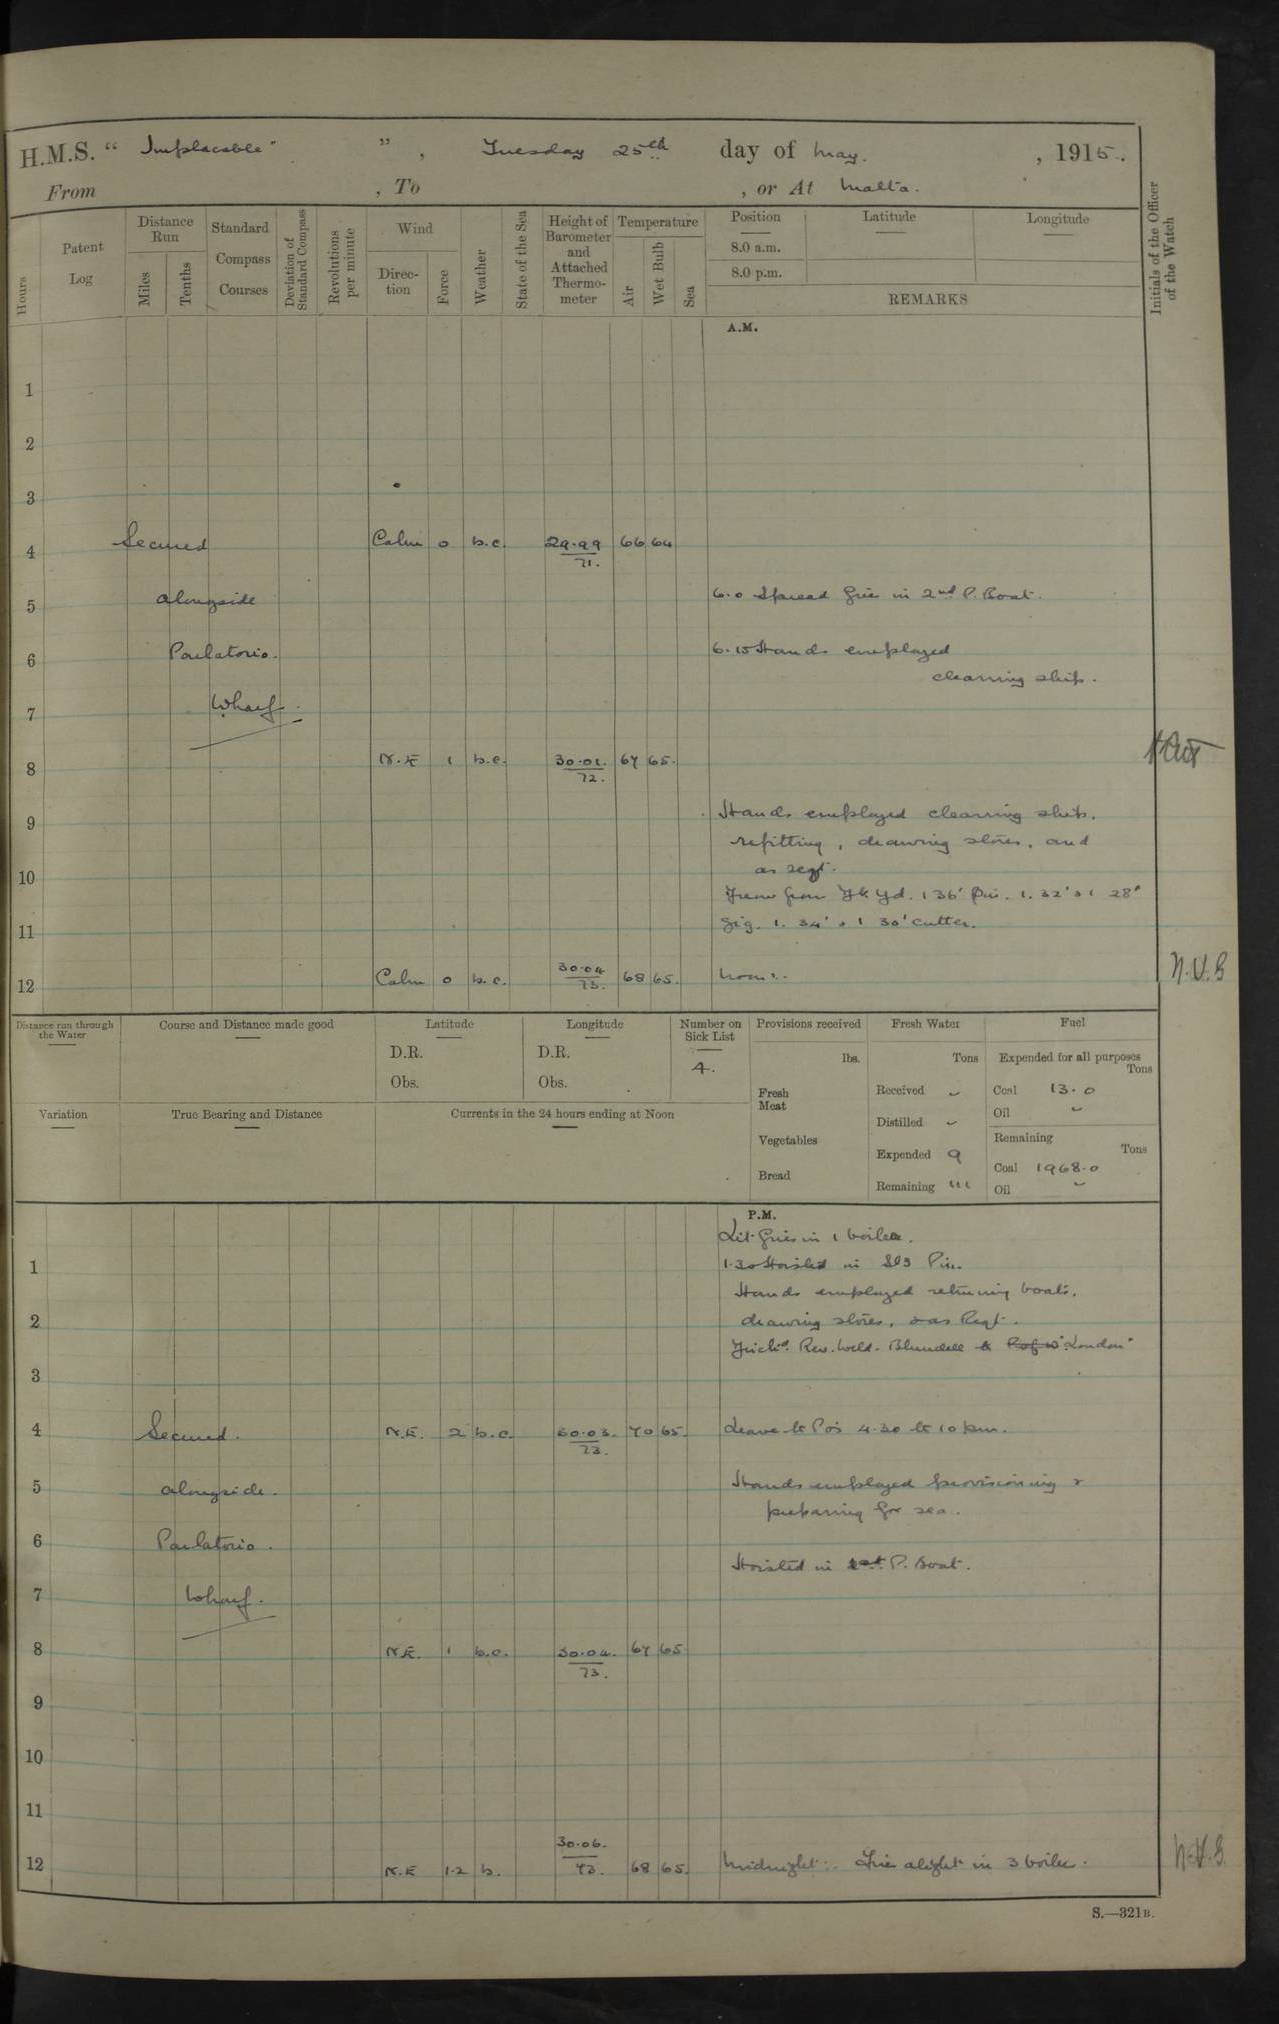 H.M.S. “ Implacable " ” , Tuesday 25th day of May. , 1915.
From , To , or At Malta.
Hours
Patent Log
Distance Run
Miles
Tenths
Standard Compass Courses
Deviation of Standard Compass
Revolutions per minute
Wind
Direc-tion
Force
Weather
State of the Sea
Height of Barometer and Attached Thermo-meter
Temperature
Air
Wet Bulb
Sea
Position
Latitude
Longitude
8.0 a.m.
8.0 p.m.
REMARKS
Initials of the Officer of the Watch
A.M.
1
2
3
4 Secured Calm 0 b.c. 29.99 66 64
71.
5 alongside 6.0 Spread fires in 2nd P. Boat.
6 Parlatorio. 6.15 Hands employed
cleaning ship.
7 Wharf.
8 N.E 1 b.c. 30.01. 67 65.
72.
9 Hands employed cleaning ship,
refitting, drawing stores, and
10 as reqt.
from Yd. 1 36' Pin. 1. 32' & 1 28'
11 Gig. 1. 34' & 1 30' cutter.
12 Calm 0 b.c. 30.04 68 65. Noon:. N.V.G
73.
Distance run through the Water
Course and Distance made good
Latitude
D.R.
Obs.
Longitude
D.R.
Obs.
Number on Sick List
4.
Provisions received
lbs.
Fresh Meat
Vegetables
Bread
Fresh Water
Tons
Received ~
Distilled ~
Expended 9
Remaining 111
Fuel
Expended for all purposes
Tons
Coal 13.0
Oil ~
Remaining
Tons
Coal 1968.0
Oil ~
Variation
True Bearing and Distance
Currents in the 24 hours ending at Noon
P.M.
Lit fires in 1 boiler.
1 1.30 Hoisted in Pin.
Hands employed returning boats,
2 drawing stores, & as Reqt.
Rev. Weld-Blundell to "London"
3
4 Secured. N.E. 2 b.c. 30.03. 70 65. Leave to P.O's 4.30 to 10 p.m.
73.
5 alongside. Hands employed provisioning &
preparing for sea.
6 Parlatorio.
Hoisted in 1st P. Boat.
7 Wharf.
8 N.E. 1 b.c. 30.04. 67 65
73.
9
10
11
12 N.E 1.2 b. 30.06. 68 65. Midnight:. Fires alight in 3 boilers. N.V.G
73.
S.—321B.